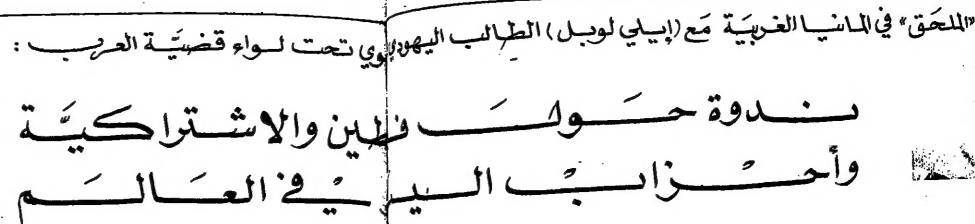 "الملحق" في المانيا الغربية مع (إيلي لوبل) الطالب اليهودي تحت لواء قضية العرب :
ندوة حول والاشتراكية
وأحزاب في العالم